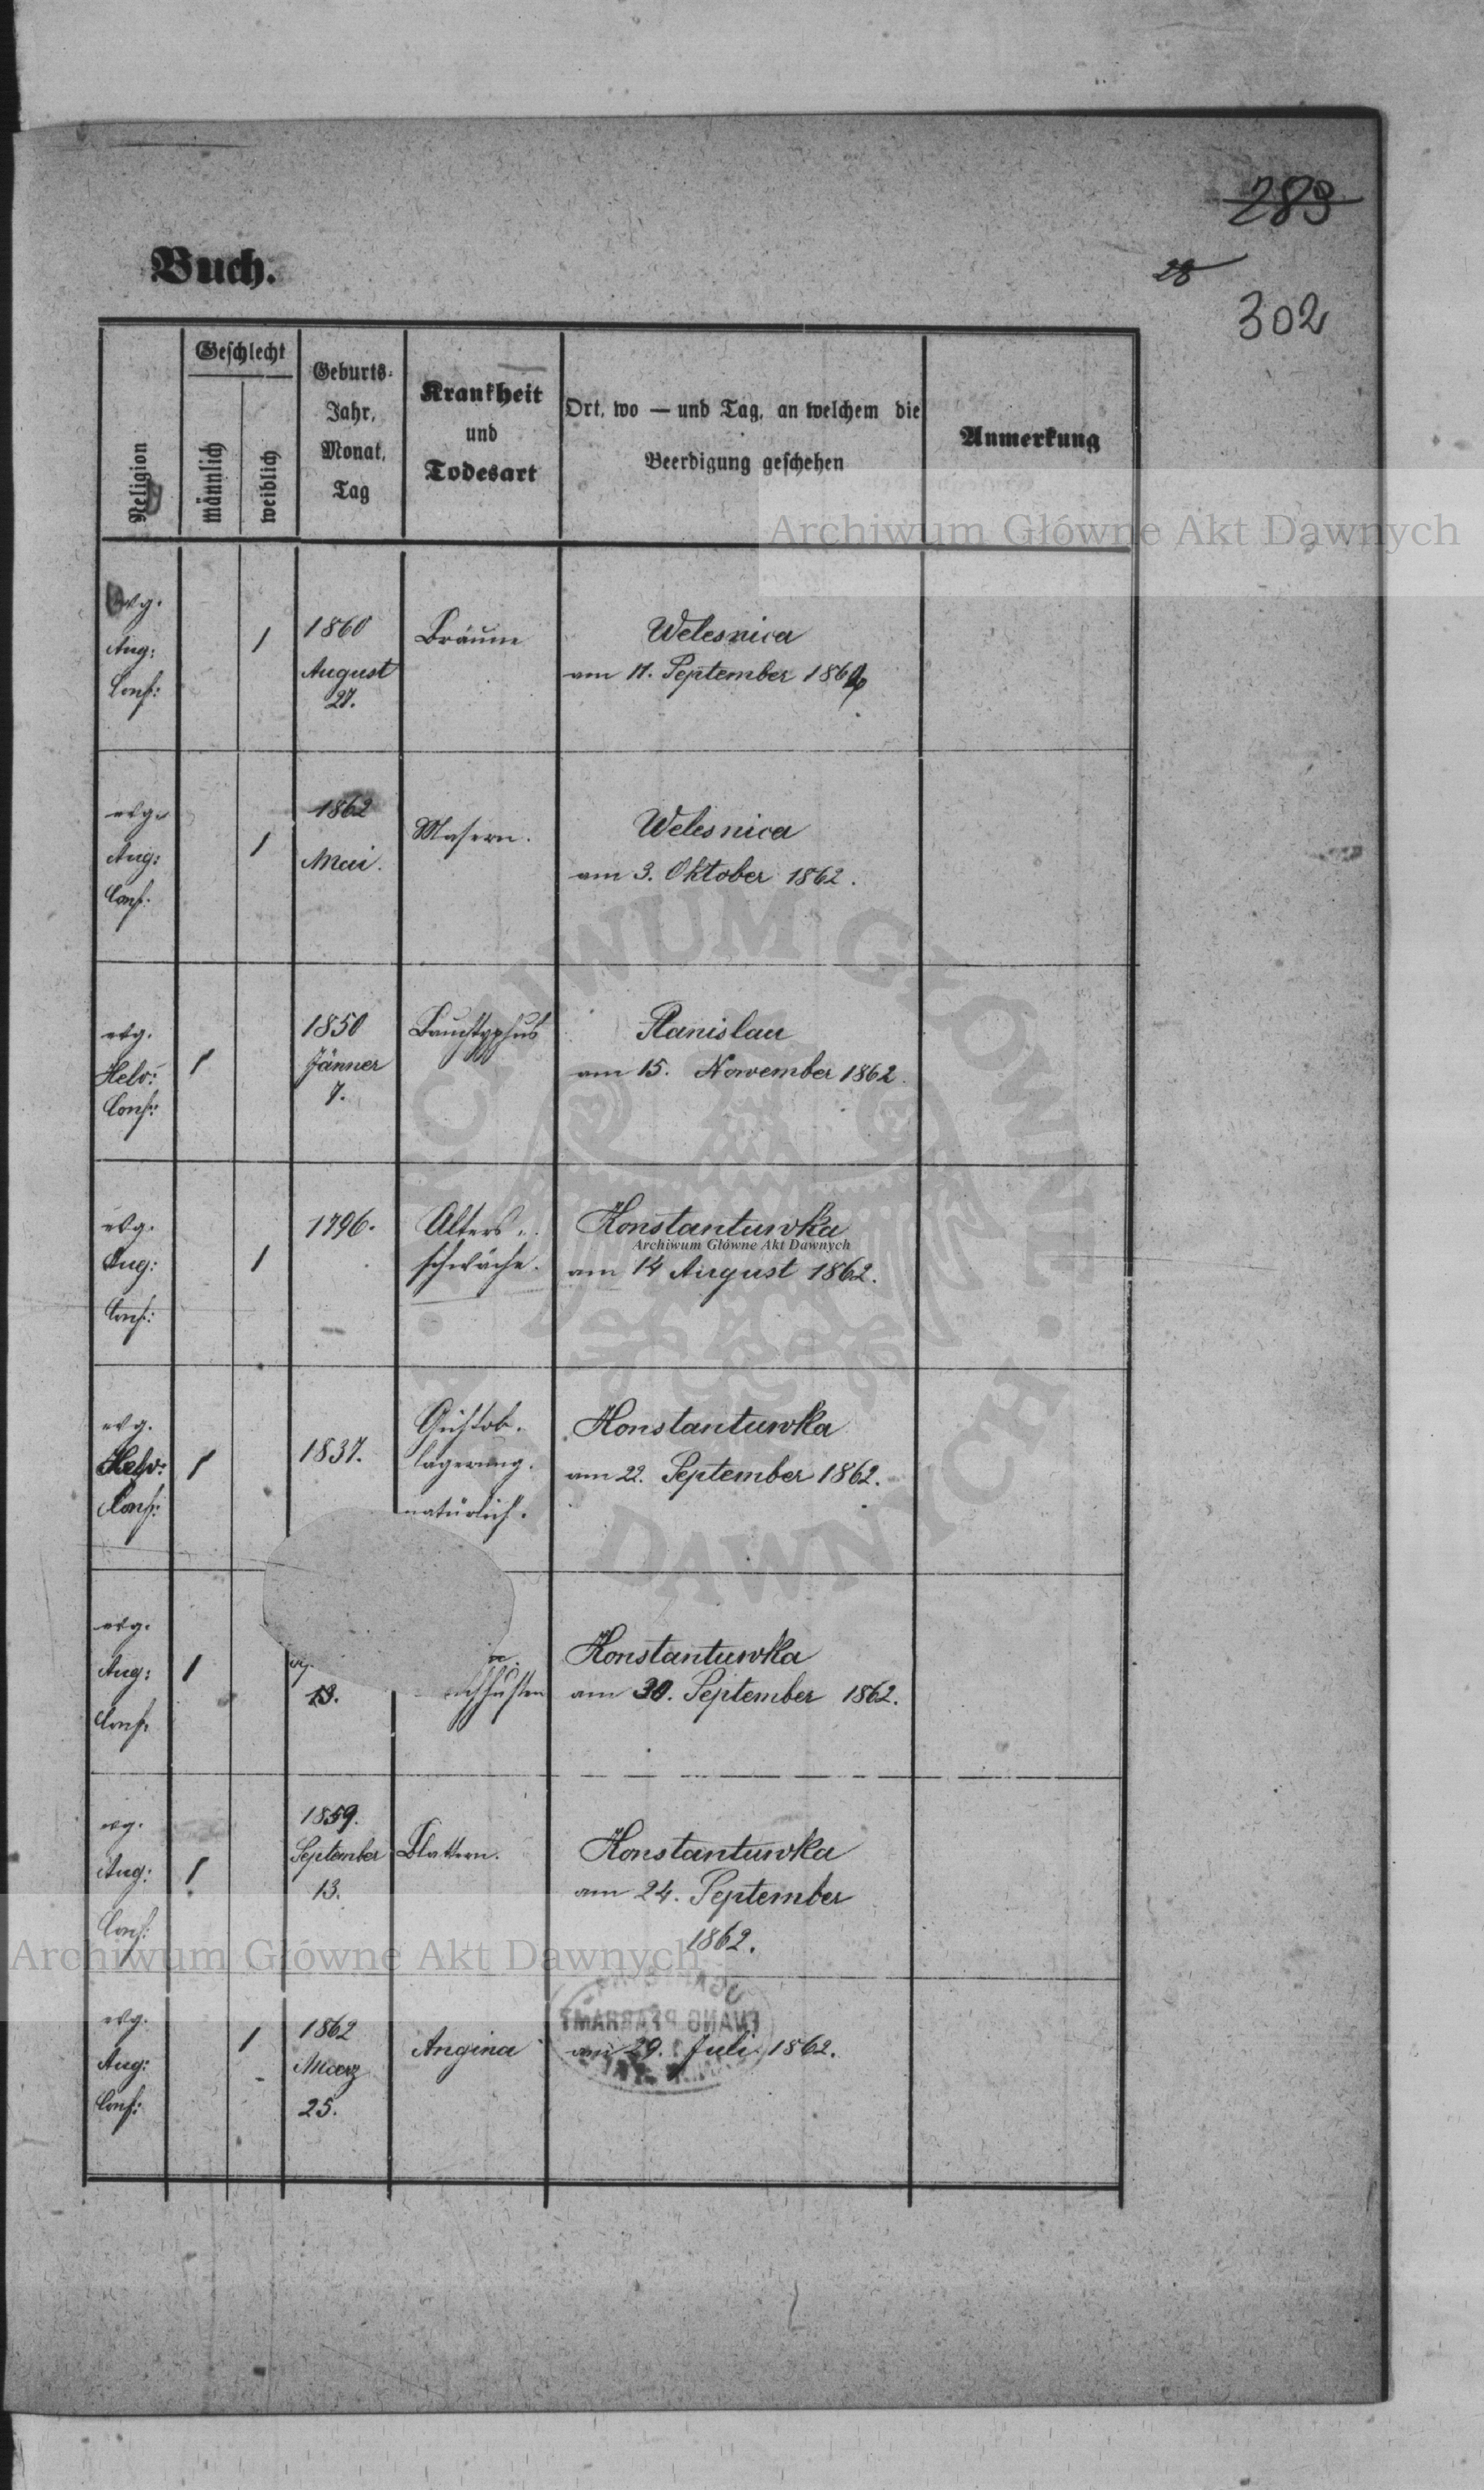 283
28
302
Buch.
Religion
Geschlecht
männlich
weiblich
Geburts-
Jahr,
Monat,
Tag
Krankheit
und
Todesart
Ort, wo — und Tag, an welchem die
Beerdigung geschehen
Anmerkung
Archiwum Główne Akt Dawnych
evg.
Aug:
Conf:
1
1860
August
27.
Bräune
Welesnica
am 17. September 1862
evg.
Aug:
Conf.
1
1862
Mai.
Masern.
Welesnica
am 3. Oktober 1862.
evg.
Helv:
Conf:
1
1850
Jänner
7.
Bauchtyphus
Stanislau
am 15. November 1862.
evg.
Aug:
Conf:
1
1796.
Alters-
schwäche.
Konstantuwka
Archiwum Główne Akt Dawnych
am 14 August 1862.
evg.
Helv:
Conf:
1
1837.
lagerung.
natürlich.
Konstantuwka
am 22. September 1862.
evg.
Aug:
Conf.
1
13.
chhusten
Konstantuwka
am 30. September 1862.
evg.
Aug:
Conf:
1
1859.
September
13.
Blattern.
Konstantuwka
am 24. September
1862.
Archiwum Główne Akt Dawnych
evg.
Aug:
Conf:
1
1862
Maerz
25.
Angina
am 29. Juli 1862.
EVANG PFARRAMT
ARCHIWUM GŁÓWNE AKT DAWNYCH